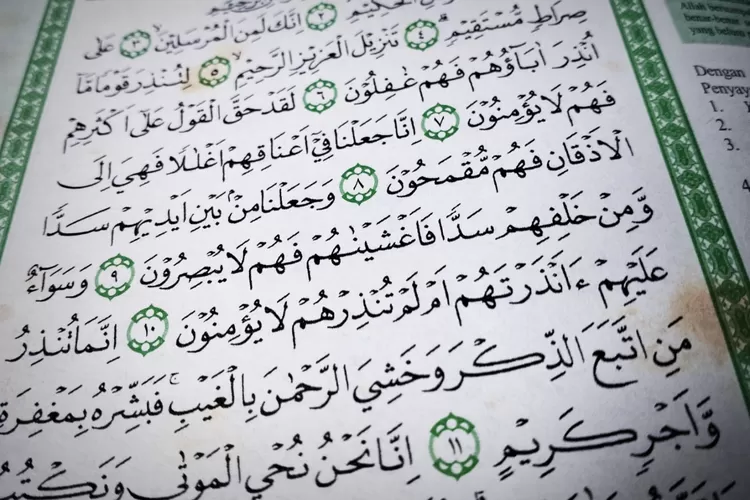 الْحَكِيْمِ ٢ اِنَّكَ لَمِنَ الْمُرْسَلِيْنَ ٣ عَلٰى
صِرَاطٍ مُّسْتَقِيْمٍ ٤ تَنْزِيْلَ الْعَزِيْزِ الرَّحِيْمِ ٥ لِتُنْذِرَ قَوْمًا مَّآ
اُنْذِرَ اٰبَاۤؤُهُمْ فَهُمْ غٰفِلُوْنَ ٦ لَقَدْ حَقَّ الْقَوْلُ عَلٰٓى اَكْثَرِهِمْ
فَهُمْ لَا يُؤْمِنُوْنَ ٧ اِنَّا جَعَلْنَا فِيْٓ اَعْنَاقِهِمْ اَغْلٰلًا فَهِيَ اِلَى
الْاَذْقَانِ فَهُمْ مُّقْمَحُوْنَ ٨ وَجَعَلْنَا مِنْۢ بَيْنِ اَيْدِيْهِمْ سَدًّا
وَّمِنْ خَلْفِهِمْ سَدًّا فَاَغْشَيْنٰهُمْ فَهُمْ لَا يُبْصِرُوْنَ ٩ وَسَوَاۤءٌ
عَلَيْهِمْ ءَاَنْذَرْتَهُمْ اَمْ لَمْ تُنْذِرْهُمْ لَا يُؤْمِنُوْنَ ١٠ اِنَّمَا تُنْذِرُ
مَنِ اتَّبَعَ الذِّكْرَ وَخَشِيَ الرَّحْمٰنَ بِالْغَيْبِۚ فَبَشِّرْهُ بِمَغْفِرَةٍ
وَّاَجْرٍ كَرِيْمٍ ١١ اِنَّا نَحْنُ نُحْيِ الْمَوْتٰى وَنَكْتُبُ
Allah
yang
Dengan
Penyay
1.
2.
3.
4